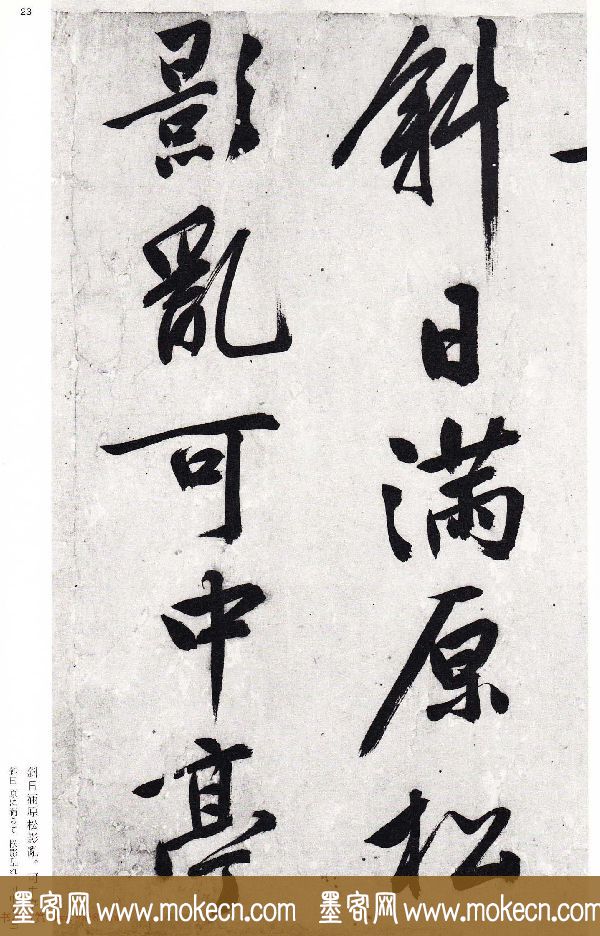 23
斜日満原松
影亂可中亭
斜日満原松影亂。可
墨客网 www.mokecn.com 墨客网 www.mokecn.com